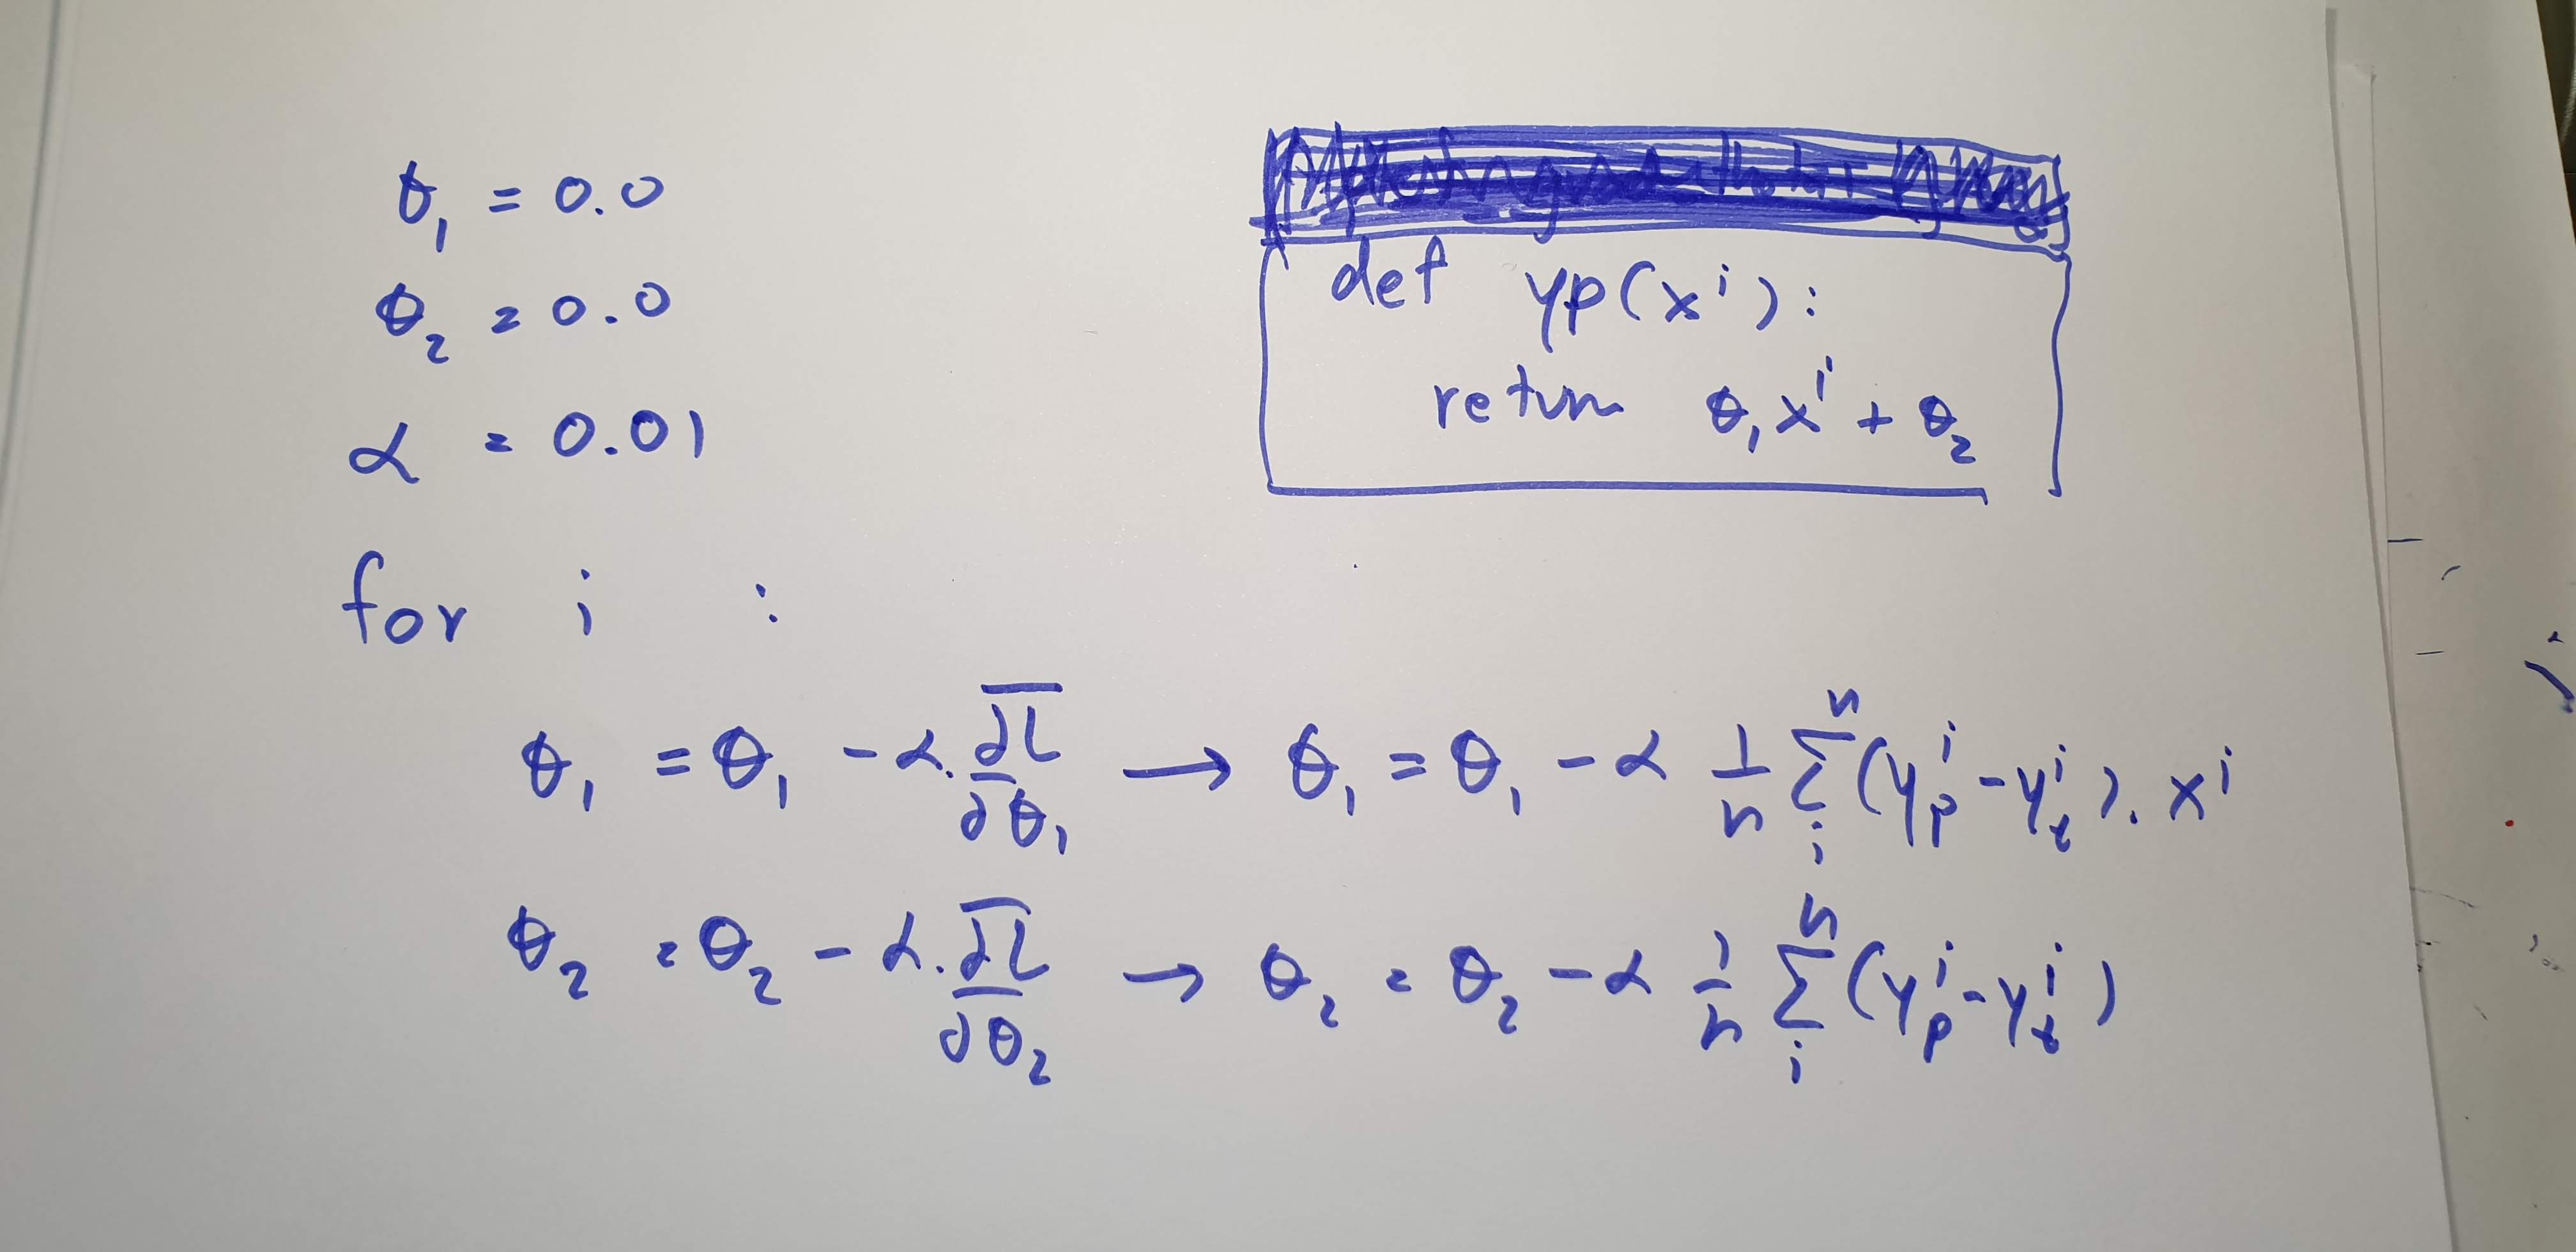 θ₁ = 0.0
θ₂ = 0.0
α = 0.01
def yp(xⁱ):
return θ₁xⁱ + θ₂
for i :
θ₁ = θ₁ - α. ∂L̅/∂θ₁ → θ₁ = θ₁ - α 1/n Σᵢⁿ (yₚⁱ - yₜⁱ). xⁱ
θ₂ = θ₂ - α. ∂L̅/∂θ₂ → θ₂ = θ₂ - α 1/n Σᵢⁿ (yₚⁱ - yₜⁱ)